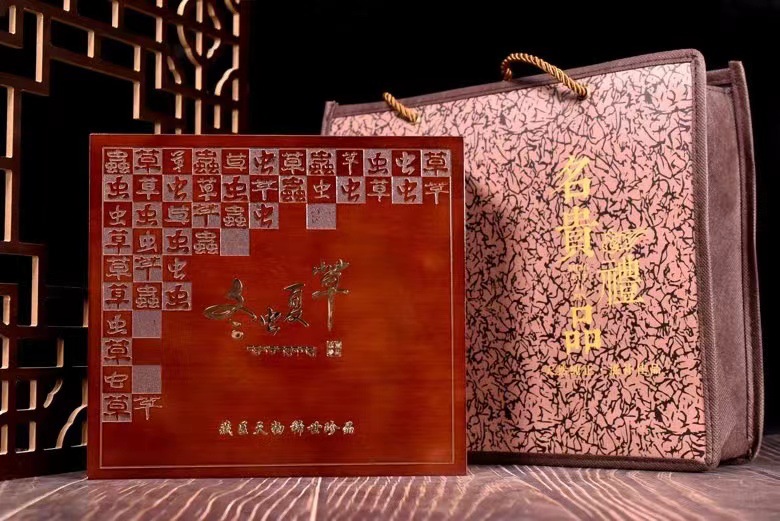 蟲草草蟲草虫草蟲草虫虫草
虫草虫草虫草蟲虫虫草虫草
虫虫草草蟲虫
草虫虫蟲
草草虫
草蟲虫
虫
草
虫
草草
冬虫夏草
藏区天物 稀世珍品
名貴禮品